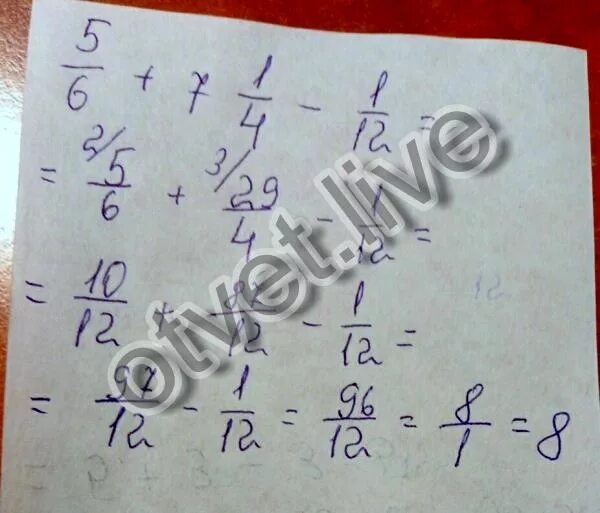 5/6 + 7 1/4 - 1/12 =
= 2/ 5/6 + 3/ 29/4 - 1/12 =
= 10/12 + 87/12 - 1/12 =
= 97/12 - 1/12 = 96/12 = 8/1 = 8
otvet.live